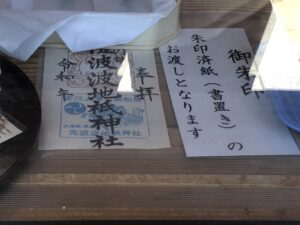 御朱印
朱印済紙（書置き）の
お渡しとなります
奉拝
佐波波地祇神社
令和 年
佐波波地祇神社